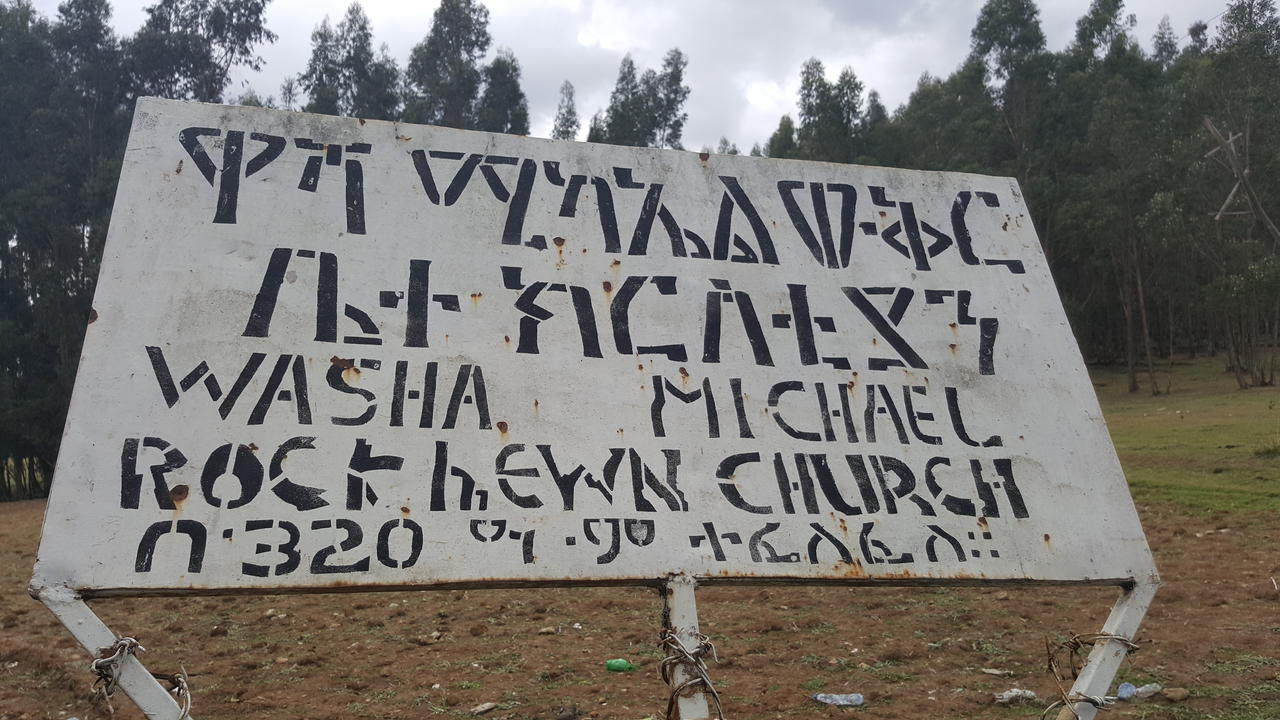 ዋሻ ሚካኤል ውቅር
ቤተ ክርስቲያን
WASHA MICHAEL
ROCK hEWN CHURCH
በ320 ዓ.ም ተፈለፈለ።